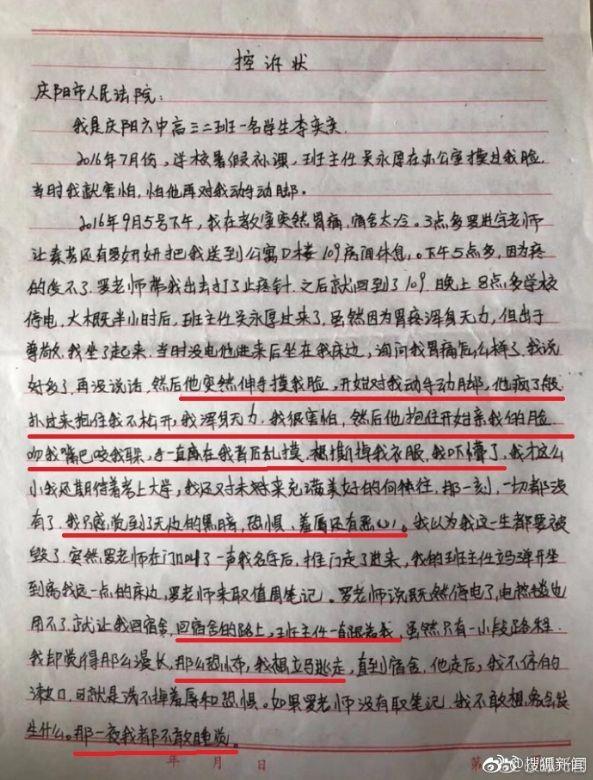 控诉状
庆阳市人民法院:
我是庆阳六中高三二班一名学生李奕奕
2016年7月份,学校暑假补课,班主任吴永厚在办公室摸过我脸
当时我就害怕,怕他再对我动手动脚。
2016年9月5号下午,我在教室突然胃痛,宿舍太冷。3点多罗进宇老师
让秦芳还有罗妍妍把我送到公寓D楼109房间休息。下午5点多,因为疼
的受不了.罗老师带我出去打了止疼针.之后就回到了109.晚上8点多学校
停电,大概半小时后,班主任吴永厚过来了.虽然因为胃疼浑身无力,但出于
尊敬,我坐了起来.当时没电他进来后坐在我床边,询问我胃痛怎么样了.我说
好多了.再没说话,然后他突然伸手摸我脸,开始对我动手动脚,他疯了般
扑过来抱住我不松开,我浑身无力.我很害怕,然后他抱住开始亲我的脸
吻我嘴巴咬我耳朵,手一直在我背后乱摸.想撕掉我衣服.我吓懵了,我才这么
小我还期待着考上大学,我还对未来充满美好的向往,那一刻,一切都没
有了.我只感觉到了无边的黑暗,恐惧、羞辱还有恶心!。我以为我这一生都要被
毁了.突然罗老师在门口叫了一声我名字后,推门走了进来,我的班主任立马弹开坐
到离我远一点的床边,罗老师来取值周笔记。罗老师说既然停电了,电热毯也
用不了.就让我回宿舍,回宿舍的路上,班主任一直跟着我,虽然只有一小段路程
我却觉得那么漫长,那么恐怖,我想立马逃走,直到宿舍.他走后,我不停的
漱口.可就是洗不掉羞辱和恐惧。如果罗老师没有取笔记.我不敢想象会发
生什么。那一夜我都不敢睡觉。
年 月 日 第
@搜狐新闻